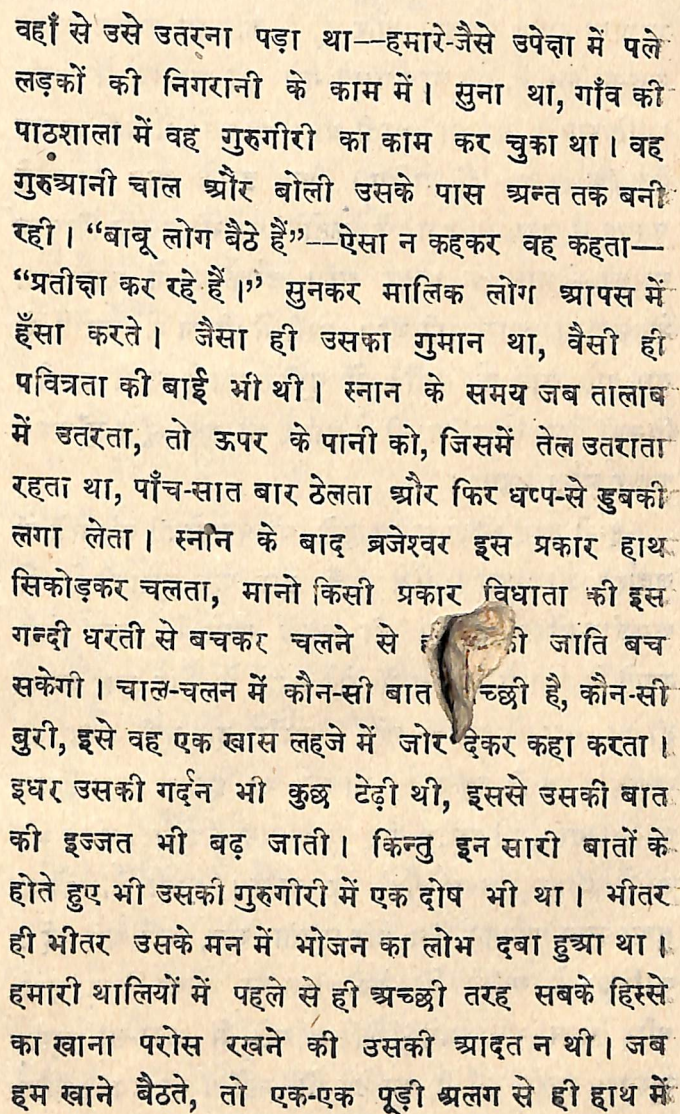 वहाँ से उसे उतरना पड़ा था—हमारे-जैसे उपेक्षा में पले
लड़कों की निगरानी के काम में। सुना था, गाँव की
पाठशाला में वह गुरुगीरी का काम कर चुका था। वह
गुरुआनी चाल और बोली उसके पास अन्त तक बनी
रही। “बाबू लोग बैठे हैं”—ऐसा न कहकर वह कहता—
“प्रतीक्षा कर रहे हैं।” सुनकर मालिक लोग आपस में
हँसा करते। जैसा ही उसका गुमान था, वैसी ही
पवित्रता की बाई भी थी। स्नान के समय जब तालाब
में उतरता, तो ऊपर के पानी को, जिसमें तेल उतराता
रहता था, पाँच-सात बार ठेलता और फिर धप्प-से डुबकी
लगा लेता। स्नान के बाद ब्रजेश्वर इस प्रकार हाथ
सिकोड़कर चलता, मानो किसी प्रकार विधाता की इस
गन्दी धरती से बचकर चलने से जाति बच
सकेगी। चाल-चलन में कौन-सी बात है, कौन-सी
बुरी, इसे वह एक खास लहजे में जोर देकर कहा करता।
इधर उसकी गर्दन भी कुछ टेढ़ी थी, इससे उसकी बात
की इज्जत भी बढ़ जाती। किन्तु इन सारी बातों के
होते हुए भी उसकी गुरुगीरी में एक दोष भी था। भीतर
ही भीतर उसके मन में भोजन का लोभ दबा हुआ था।
हमारी थालियों में पहले से ही अच्छी तरह सबके हिस्से
का खाना परोस रखने की उसकी आदत न थी। जब
हम खाने बैठते, तो एक-एक पूड़ी अलग से ही हाथ में